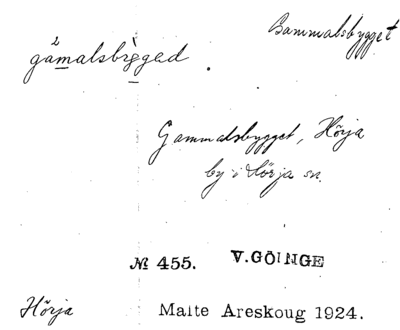 Gammalsbygget
gåmalsbỳged .
Gammalsbygget, Hörja
by i Hörja sn.
№ 455. V. GÖINGE
Hörja Malte Areskoug 1924.